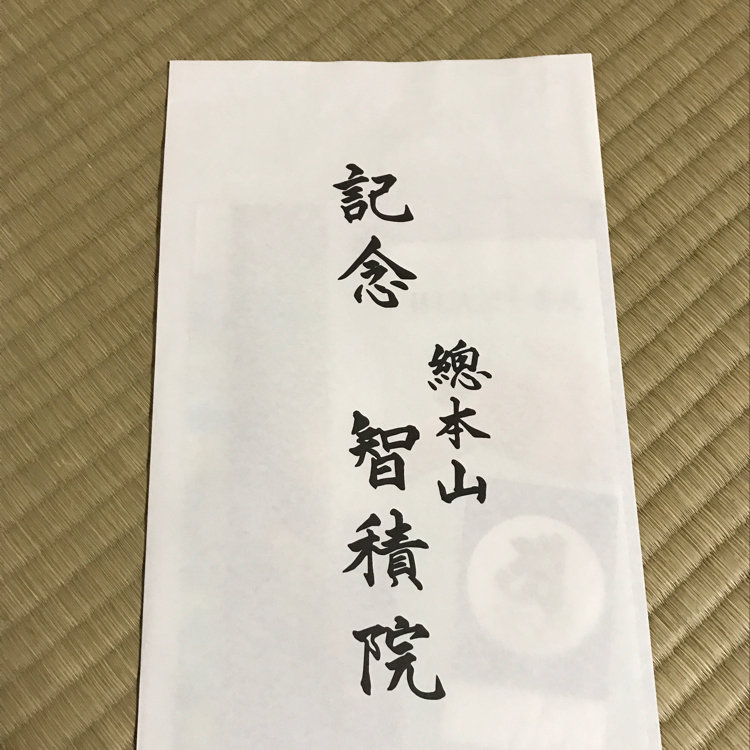 記念
總本山
智積院